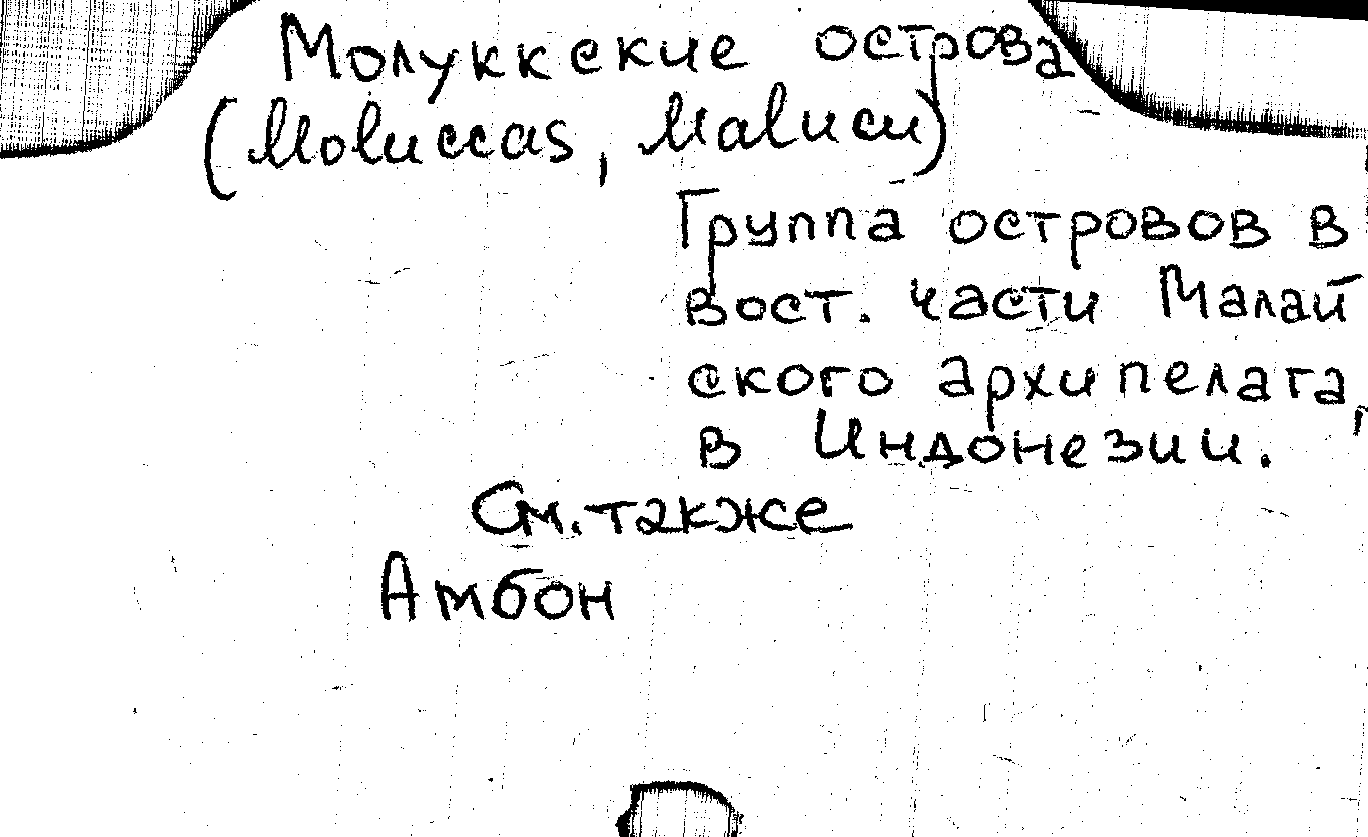 Молуккские острова
(Moluccas, Malucu)
Группа островов в
вост. части Малай
ского архипелага,
в Индонезии.
См. также
Амбон